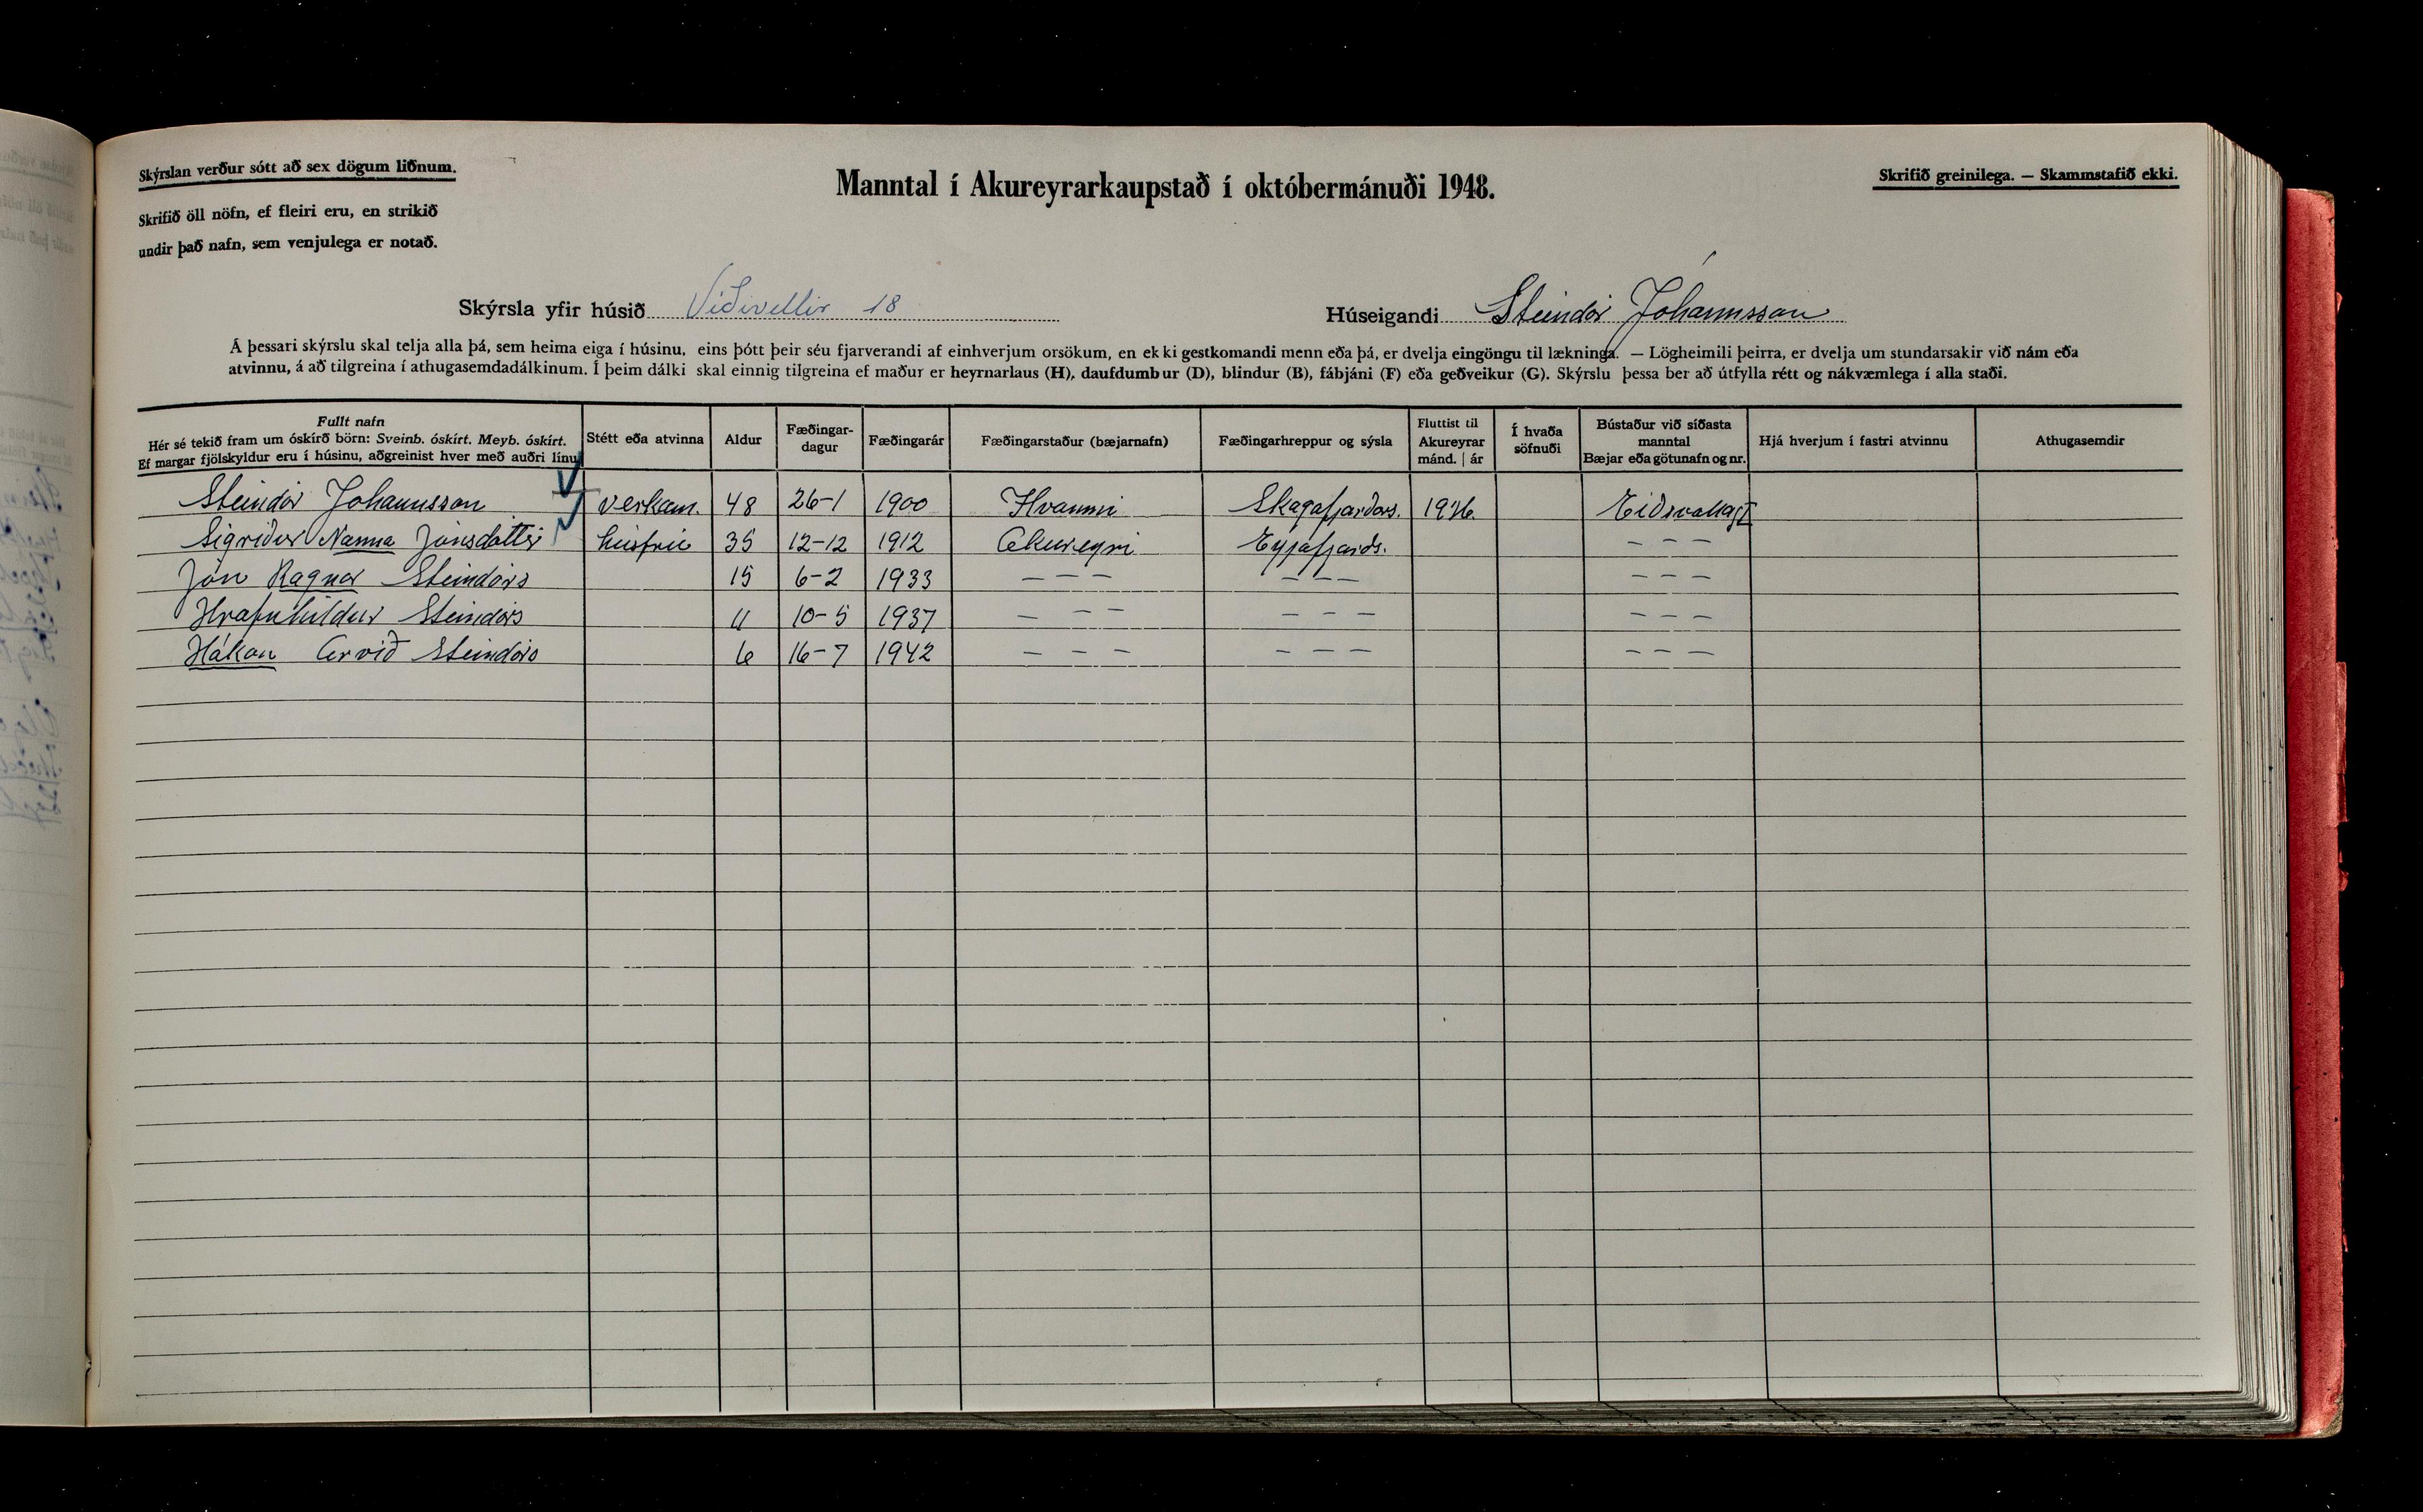 Skýrslan verður sótt að sex dögum liðnum.
Skrifið öll nöfn, ef fleiri eru, en strikið
undir það nafn, sem venjulega er notað.
Manntal í Akureyrarkaupstað í októbermánuði 1948.
Skrifið greinilega. — Skammstafið ekki.
Skýrsla yfir húsið Víðivellir 18
Húseigandi Steindór Jóhannsson
Á þessari skýrslu skal telja alla þá, sem heima eiga í húsinu, eins þótt þeir séu fjarverandi af einhverjum orsökum, en ekki gestkomandi menn eða þá, er dvelja eingöngu til lækninga. — Lögheimili þeirra, er dvelja um stundarsakir við nám eða
atvinnu, á að tilgreina í athugasemdadálkinum. Í þeim dálki skal einnig tilgreina ef maður er heyrnarlaus (H), daufdumbur (D), blindur (B), fábjáni (F) eða geðveikur (G). Skýrslu þessa ber að útfylla rétt og nákvæmlega í alla staði.
Fullt nafn
Hér sé tekið fram um óskírð börn: Sveinb. óskírt. Meyb. óskírt.
Ef margar fjölskyldur eru í húsinu, aðgreinist hver með auðri línu
Stétt eða atvinna
Aldur
Fæðingar-
dagur
Fæðingarár
Fæðingarstaður (bæjarnafn)
Fæðingarhreppur og sýsla
Fluttist til
Akureyrar
mánd. | ár
Í hvaða
söfnuði
Bústaður við síðasta
manntal
Bæjar eða götunafn og nr.
Hjá hverjum í fastri atvinnu
Athugasemdir
Steindór Johannsson verkam. 48 26-1 1900 Hvammi Skagafjarðars. 1926 Eiðsvallag I
Sigriður Nanna Jónsdóttir húsfrú 35 12-12 1912 Akureyri Eyjafjards. - - -
Jón Ragnar Steindórs 15 6-2 1933 - - - - - - - - -
Hrafnhildur Steindórs 11 10-5 1937 - - - - - - - - -
Hákon Arvið Steindórs 6 16-7 1942 - - - - - - - - -